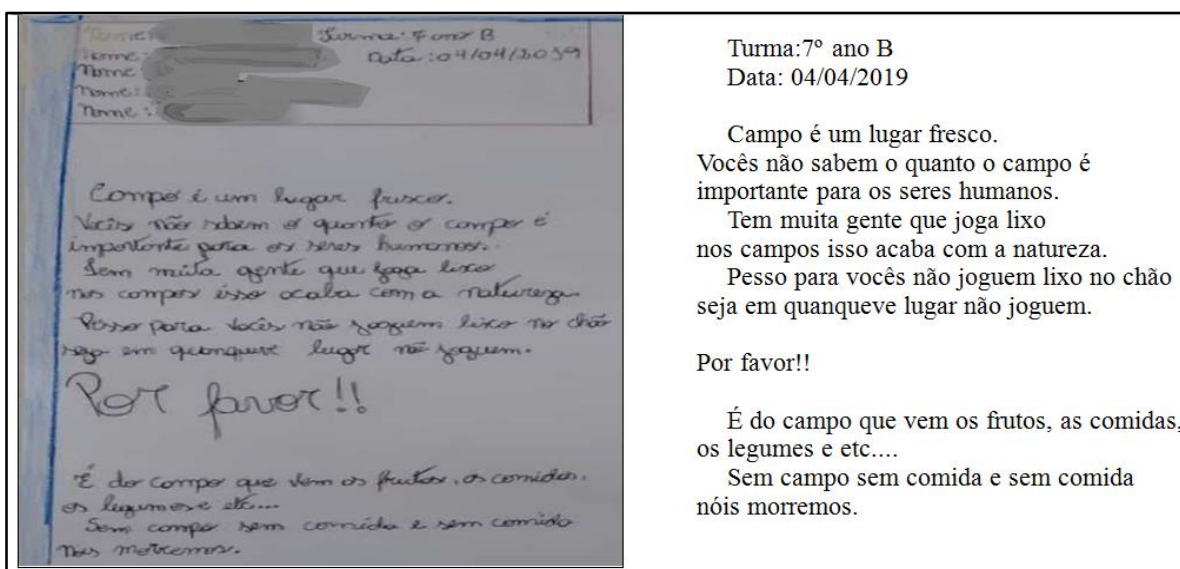 Nome: Turma: 7 ano B
Nome: Data: 04/04/2019
Nome
Nome:
Nome:
Campo é um lugar fresco.
Vocês não sabem o quanto o campo é
importante para os seres humanos.
Tem muita gente que joga lixo
nos campos isso acaba com a natureza.
Pesso para vocês não joguem lixo no chão
seja em quanqueve lugar não joguem.
Por favor!!
É do campo que vem os frutos, as comidas,
os legumes e etc....
Sem campo sem comida e sem comida
nóis morremos.
Turma:7º ano B
Data: 04/04/2019
Campo é um lugar fresco.
Vocês não sabem o quanto o campo é
importante para os seres humanos.
Tem muita gente que joga lixo
nos campos isso acaba com a natureza.
Pesso para vocês não joguem lixo no chão
seja em quanqueve lugar não joguem.
Por favor!!
É do campo que vem os frutos, as comidas,
os legumes e etc....
Sem campo sem comida e sem comida
nóis morremos.